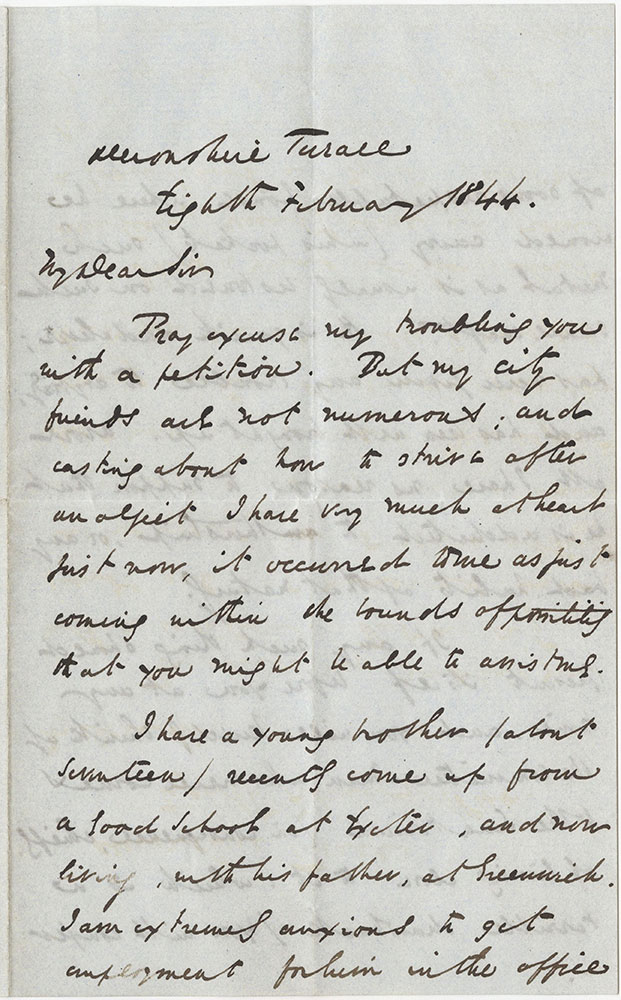 Devonshire Terrace
Eighth February 1844.
My Dear Sir
Pray excuse my troubling you
with a petition. But my city
friends are not numerous; and
casting about how to strive after
an object I have very much at heart
just now, it occurred to me as just
coming within the bounds of possibility
that you might be able to assist me.
I have a young brother /about
seventeen/ recently come up from
a good school at Exeter, and now
living, with his father, at Greenwich.
I am extremely anxious to get
employment for him in the office